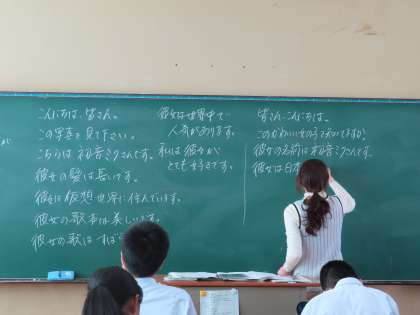 こんにちは、皆さん。
この写真を見て下さい。
こちらは初音ミクさんです。
彼女の髪は長いです。
彼女は仮想世界に住んでいます。
彼女の歌声は美しいです。
彼女の歌は すば
彼女は世界中で
人気があります。
私は彼女が
とても好きです。
皆さん、こんにちは。
このかわいい女の子を知ってますか?
彼女の名前は初音ミクさんです。
彼女は日本
が